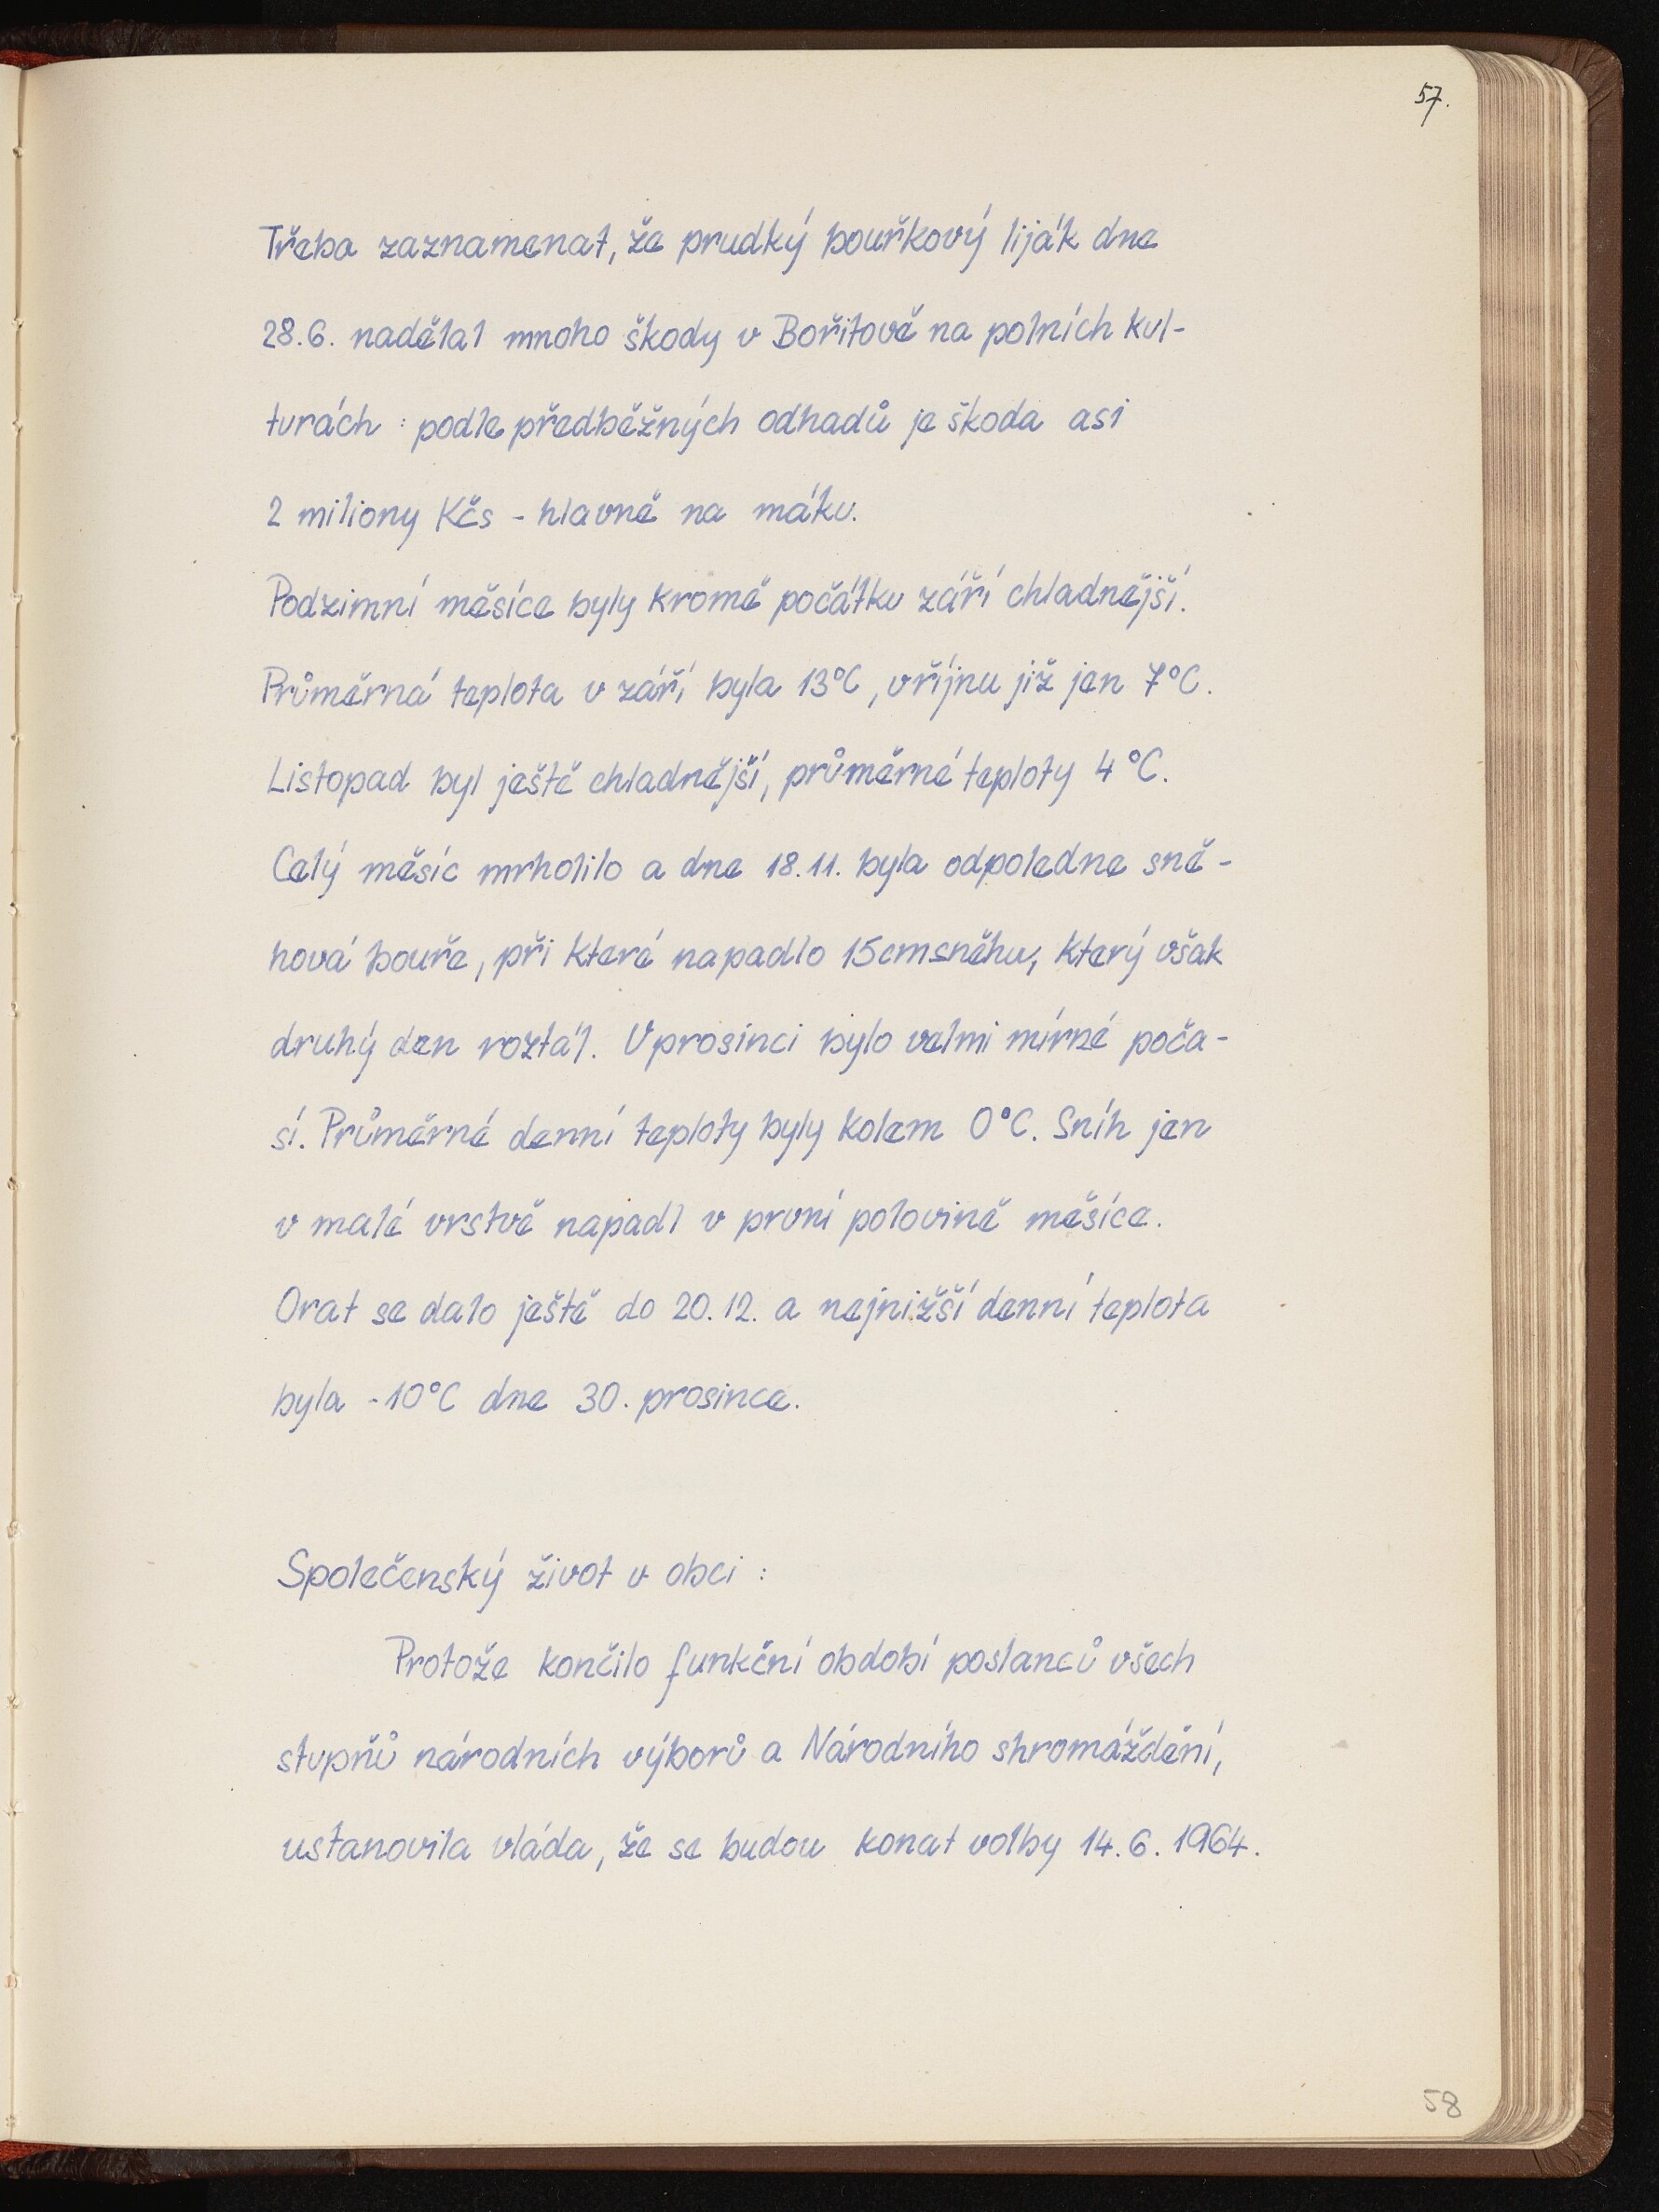 57.
Třeba zaznamenat, že prudký bouřkový liják dne
28.6. nadělal mnoho škody v Bořitově na polních kul-
turách : podle předběžných odhadů je škoda asi
2 miliony Kčs - hlavně na máku.
Podzimní měsíce byly kromě počátku září chladnější.
Průměrná teplota v září byla 13°C, v říjnu již jen 7°C.
Listopad byl ještě chladnější, průměrné teploty 4°C.
Celý měsíc mrholilo a dne 18.11. byla odpoledne sně-
hová bouře, při které napadlo 15cm sněhu, který však
druhý den roztál. V prosinci bylo velmi mírné poča-
sí. Průměrné denní teploty byly kolem 0°C. Sníh jen
v malé vrstvě napadl v první polovině měsíce.
Orat se dalo ještě do 20.12. a nejnižší denní teplota
byla -10°C dne 30. prosince.
Společenský život v obci :
Protože končilo funkční období poslanců všech
stupňů národních výborů a Národního shromáždění,
ustanovila vláda, že se budou konat volby 14.6.1964.
58